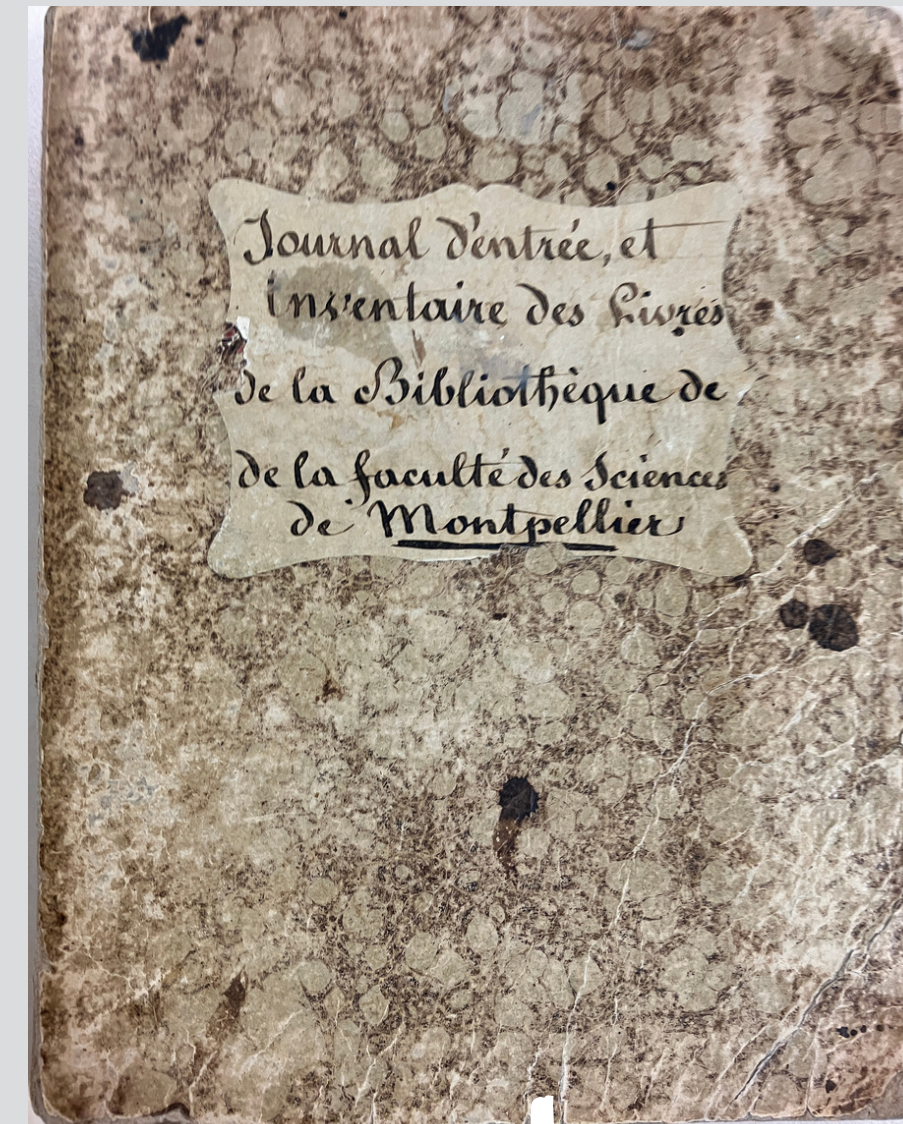 Journal d'entrée, et
inventaire des Livres
de la Bibliothèque de
de la faculté des Sciences
de Montpellier